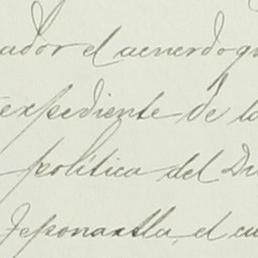 ador el acuerdo qu
expediente de la
política del Di
Teponaxtla, el cu